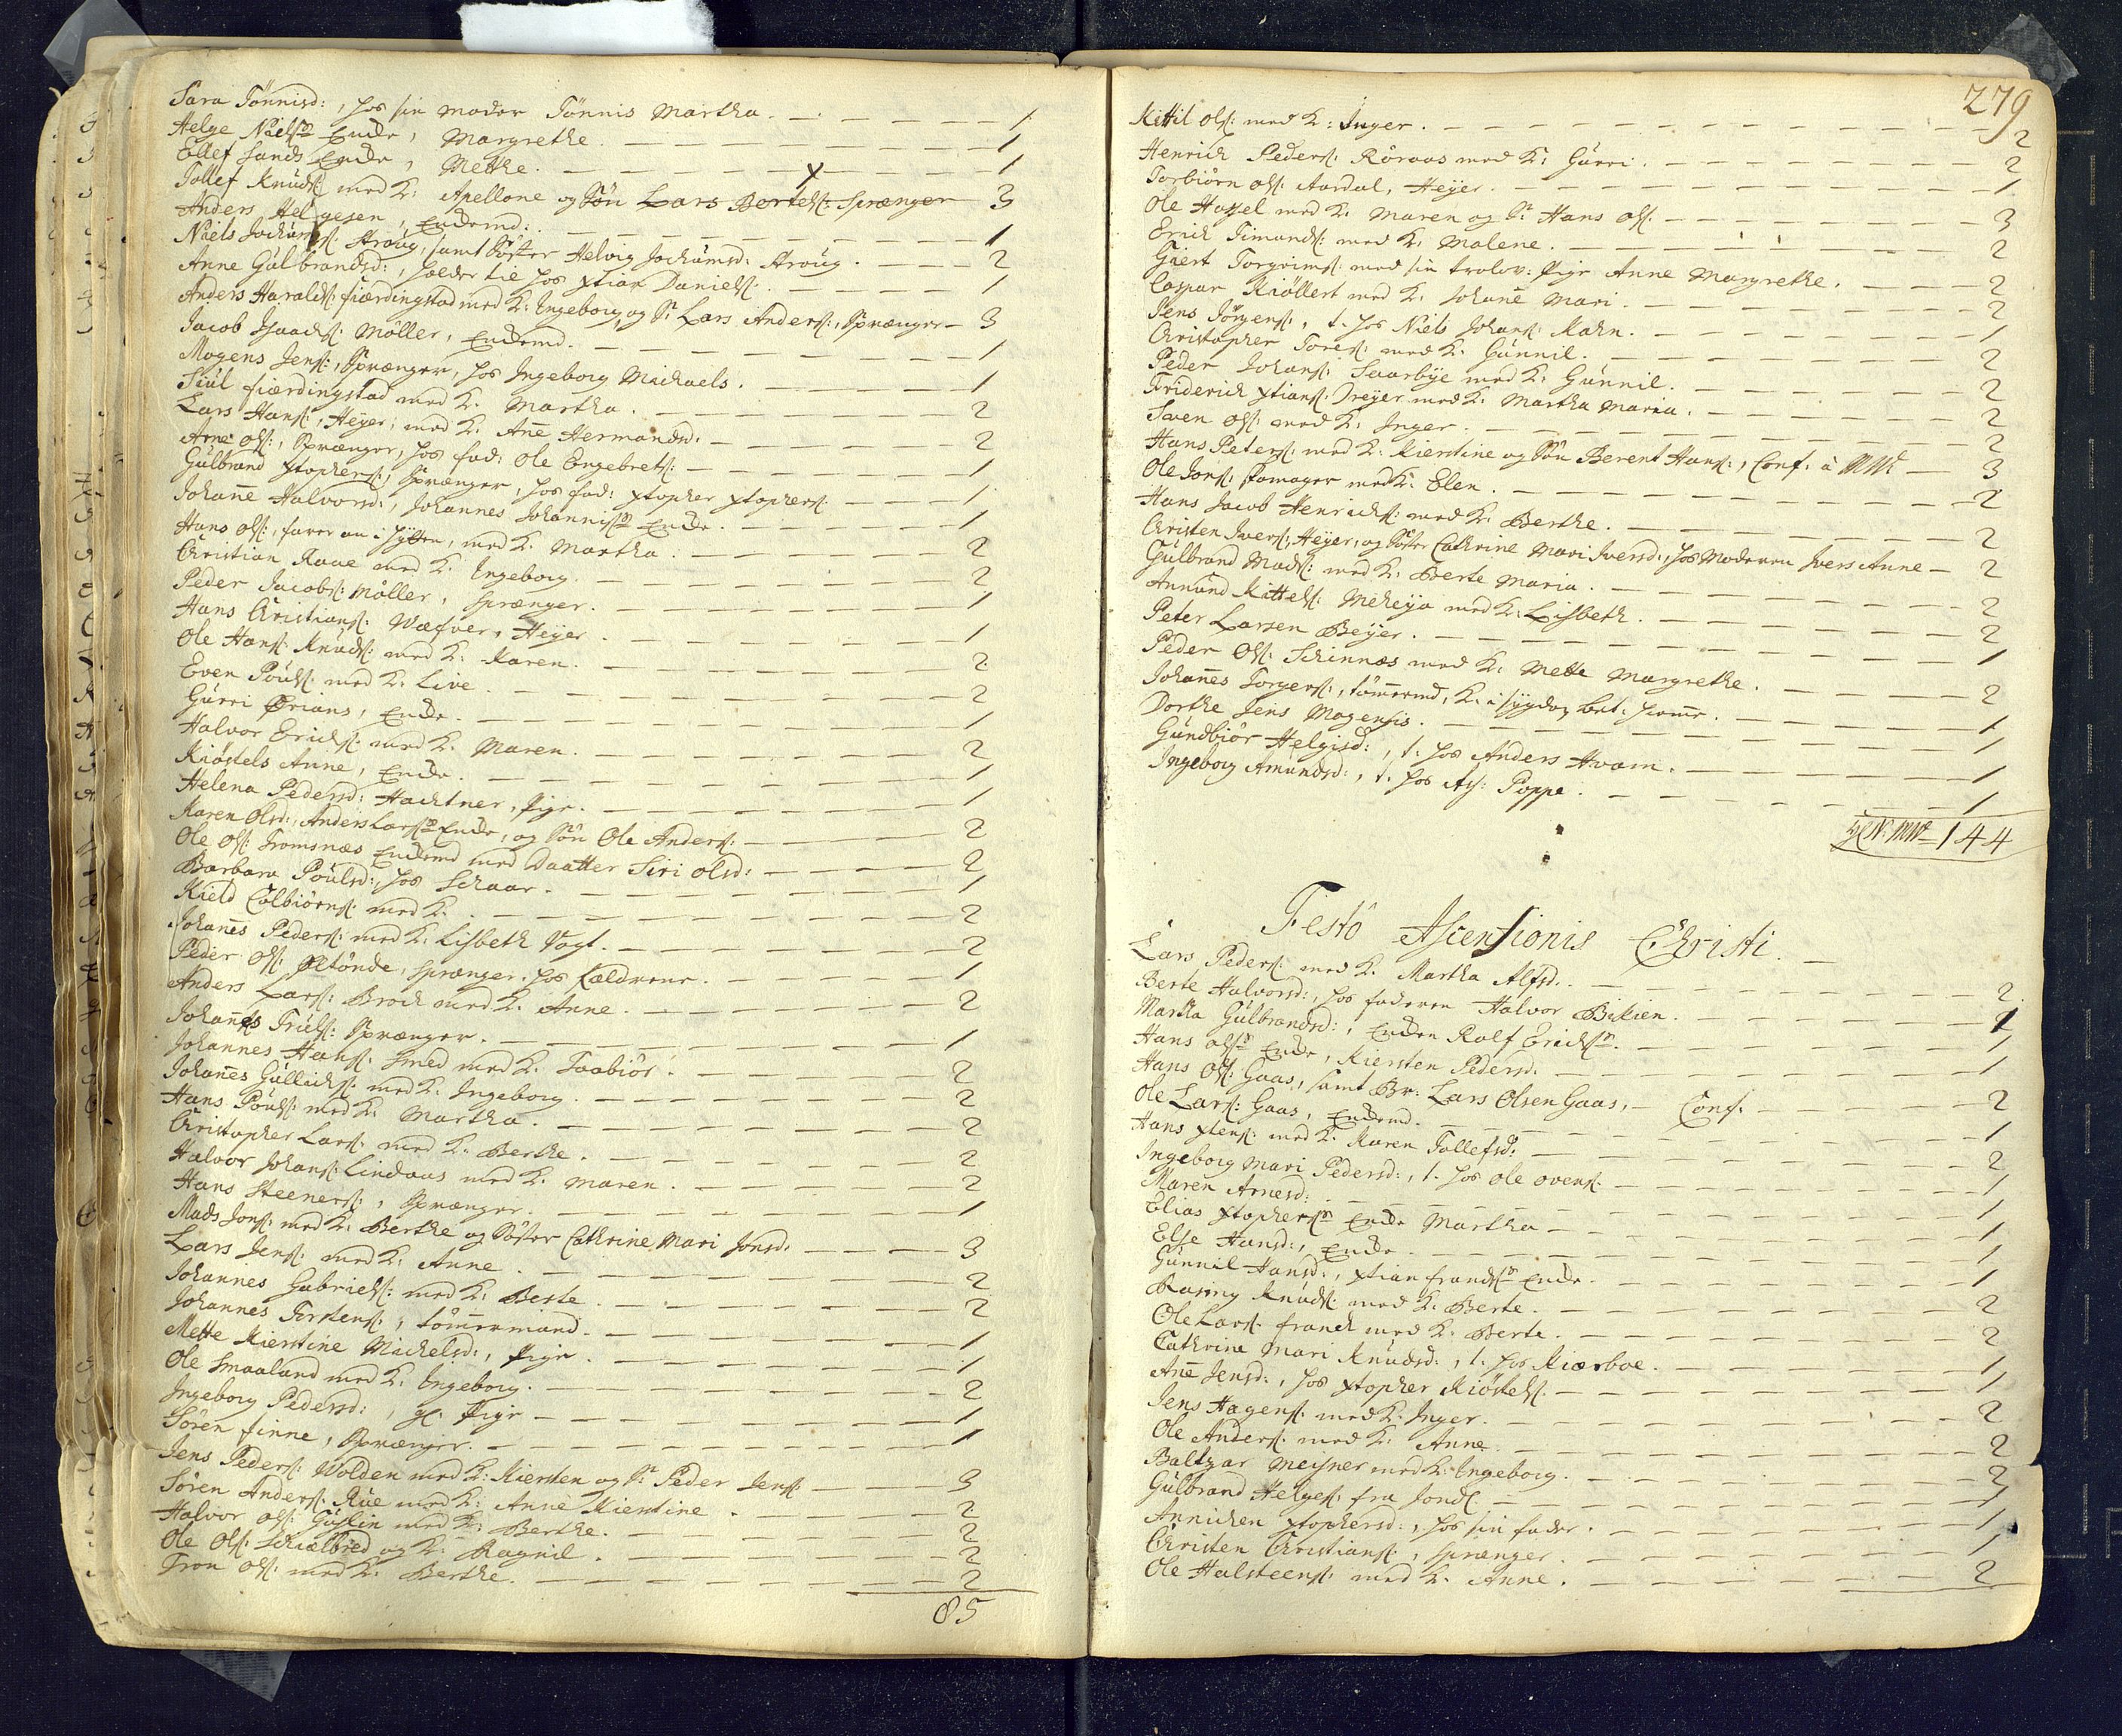 Sara Tönnisd:, hos sin moder Tönnis Martha. — 1
Helge Nielsn Encke, Margrethe. — 1
Ellef Lunds Encke, Mette. — 1
Tollef Knuds: med K: Apellone og Sön Lars Bertels: Sprænger 3
Anders Helgesen, Enckemd: — 1
Niels Jochums: Aroug, samt Söster Helvig Jochumsd: Aroug. — 2
Anne Gulbrandsd:, holder til hos xtian Daniels: — 1
Anders Haralds: fiærdingstad med K: Ingeborg og S: Lars Anders:, Sprænger — 3
Jacob Isaachs: Möller, Enckemd. — 1
Mogens Jens:, Sprænger, hos Ingeborg Michaels. — 1
Siul fiærdingstad med K: Martha. — 2
Lars Hans:, Heyer, med K: Ane Hermandsd: — 2
Arne Ols:, Sprænger, hos fad: Ole Engebrets: — 1
Gulbrand xtophers:, Sprænger, hos fad: xtopher xtophers: — 1
Johane Halvorsd:, Johannes Johannisn Encke. — 1
Hans Ols:, farer an i hytten, med K: Martha. — 2
Christian Raae med K: Ingeborg. — 2
Peder Jacobs: Möller, sprænger. — 1
Hans Christians: Wæfver, Heyer. — 1
Ole Hans: Knuds: med K: Karen. — 2
Even Pouls: med K: Live. — 2
Gurri Brians, Encke. — 1
Halvor Erichs: med K: Maren. — 2
Kiöstels Anne, Encke. — 1
Helena Pedersd: Hachtner, Pige. — 1
Karen Olsd:, Anders Larsn Encke, og Sön Ole Anders: — 2
Ole Ols: Tromsnæs Enckemd med Daatter Siri Olsd: — 2
Barbara Poulsd:, hos Schaar. — 1
Kield Colbiörns: med K: — 2
Johanes Peders: med K: Lisbeth Vogt. — 2
Peder Ols: Öltönde, sprænger. hos Forældrene. — 1
Anders Lars: Broch med K: Anne. — 2
Johannes Truls: Sprænger. — 1
Johannes Hans: Smed med K: Taabiör. — 2
Johanes Gullichs: med K: Ingeborg. — 2
Hans Pouls: med K: Martha. — 2
Christopher Lars: med K: Berthe. — 2
Halvor Johans: Lindaas med K: Maren. — 2
Hans Steeners:, Sprænger. — 1
Mads Jons: med K: Berthe og Söster Cathrine Mari Jonsd: — 3
Lars Jens: med K: Anne. — 2
Johannes Gabriels: med K: Berte. — 2
Johannes Torstens:, tömmermand. — 1
Mette Kierstine Michelsd:, Pige. — 1
Ole Smaaland med K: Ingeborg. — 2
Ingeborg Pedersd:, gl: Pige — 1
Sören finne, Sprænger. — 1
Jens Peders: Wolden med K: Kiersten og S: Peder Jens: — 3
Sören Anders: Rüe med K: Anne Kierstine. — 2
Halvor Ols: Guslin med K: Berthe. — 2
Ole Ols: Schiælbred og K: Ragnil. — 2
Tron Ols: med K: Berthe. — 2
85
279
Kittil Ols: med K: Inger. — 2
Henrich Peders: Röraas med K: Gurri. — 2
Torbiörn Ols: Aardal, Heyer. — 1
Ole Hassel med K: Maren og S: Hans Ols: — 3
Erich Timands: med K: Malene. — 2
Giert Torgrims: med sin trolov: Pige Anne Margrethe. — 2
Caspar Kiöllert med K: Johane Mari. — 2
Jens Jörgens:, t. hos Niels Johans: Kahn. — 1
Christopher Tores: med K: Gunnil. — 2
Peder Johans: Saarbye med K: Gunnil. — 2
Friderich xtians: Dreyer med K: Martha Maria. — 2
Swen Ols: med K: Inger. — 2
Hans Peters: med K: Kierstine og Sön Berent Hans:, Conf. — 3
Ole Jons: Pamager med K: Elen. — 2
Hans Jacob Henrichs: med K: Berthe. — 2
Christen Ivers:, Heyer, og Söster Cathrine Mari Iversd:, hos Moderen Ivers Anne — 2
Gulbrand Mads: med K: Berte Maria. — 2
Annund Kittels: Meheya med K: Lisbeth. — 2
Peter Larsen Beyer. — 1
Peder Ols: Schinnes med K: Mette Margrethe. — 2
Johanes Torgers:, tömmermd, K: i sygdom bet: hiemme. — 1
Dorthe Jens Mogensis. — 1
Gundbiör Helgisd:, t. hos Anders Hvam. — 1
Ingeborg Amundsd:, t. hos As: Poppe. — 1
144
Festo Ascensionis Christi.
Lars Peders: med K: Martha Alfsd: — 2
Berte Halvorsd:, hos faderen Halvor Bikien. — 1
Martha Gulbrandsd:, Encken Rolf Erichsn. — 1
Hans Olsn Encke, Kiersten Pedersd: — 1
Hans Ols: Gaas, samt Br: Lars Olsen Gaas, — Conf. — 2
Ole Lars: Gaas, Enckemd. — 1
Hans xtens: med K: Karen Tollefsd: — 2
Ingeborg Mari Pedersd:, t. hos Ole Ovens: — 1
Maren Arnesd: — 1
Elias xtophersn Encke Martha — 1
Else Hansd:, Encke. — 1
Gunnil Hansd:, xtian frandsn Encke. — 1
Rasing Knuds: med K: Berte. — 2
Ole Lars: franch med K: Berte. — 2
Cathrine Mari Knudsd:, t. hos Kiærboe. — 1
Ane Jensd:, hos xtopher Kiöstels: — 1
Jens Hagens: med K: Inger. — 2
Ole Anders: med K: Anne. — 2
Baltzar Meisner med K: Ingeborg. — 2
Gulbrand Helges: fra Jonds: — 1
Annichen xtophersd:, hos sin fader. — 1
Christen Christians:, sprænger. — 1
Ole Halsteens: med K: Anne. — 2